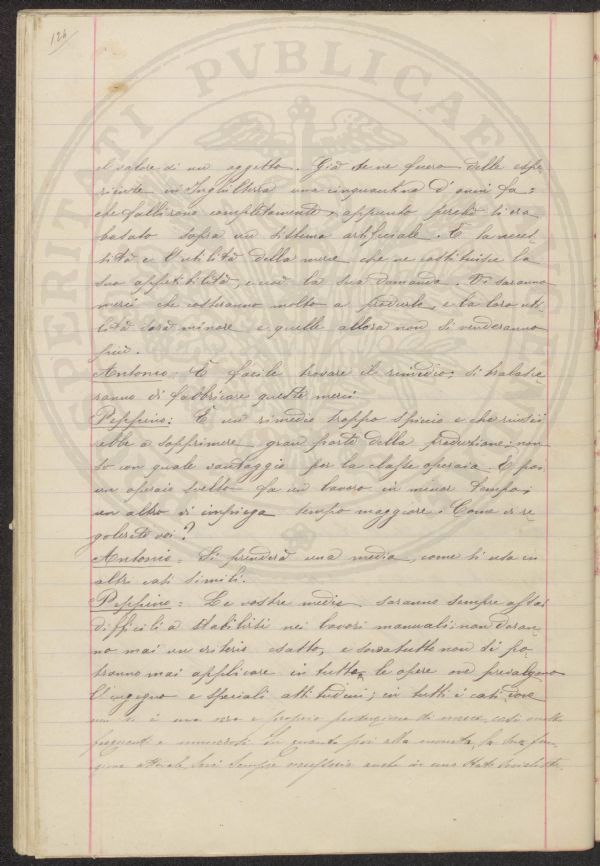 126
el valore di un oggetto. Già se ne fecero delle espe-
rienze in Inghilterra una cinquantina d'anni fa:
che fallirono completamente, appunto perchè si era
basato sopra un sistema artificiale. È la neces-
sità e l'utilità della merce che ne costituisce la
sua appetibilità, e così la sua domanda. Vi saranno
merci che costeranno molto a produrle, e la loro uti-
lità sarà minore e quelle allora non si venderanno
più.
Antonio: È facile trovare il rimedio: si tralasce-
ranno di fabbricare queste merci.
Peppino: È un rimedio troppo spiccio e che riusci-
rebbe a sopprimere gran parte della produzione: non
so con quale vantaggio per la classe operaia. E poi
un operaio svelto fa un lavoro in minor tempo;
un altro vi impiega tempo maggiore. Come vi re-
golerete voi?
Antonio: Si prenderà una media, come si usa in
altri casi simili.
Peppino: Le vostre medie saranno sempre assai
difficili a stabilirsi nei lavori manuali: non daran-
no mai un criterio esatto, e soratutto non si po-
tranno mai applicare in tutte le opere ove prevalgono
l'ingegno e speciali attitudini; in tutti i casi dove
non vi è una vera e propria produzione di merce, casi molto
frequenti e numerosi. In quanto poi alla moneta, la sua fun-
zione attuale, sarà sempre necessaria anche in uno Stato socialista.